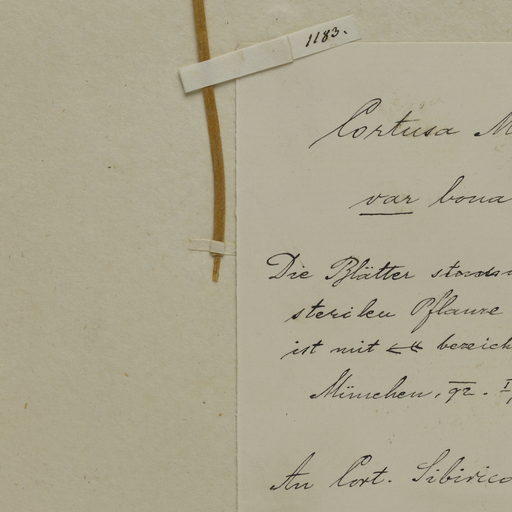 1183.
Cortusa M
var bona
Die Blätter stamm
sterilen Pflanze
ist mit bezeich
München, 92. I
An Cort. Sibirico